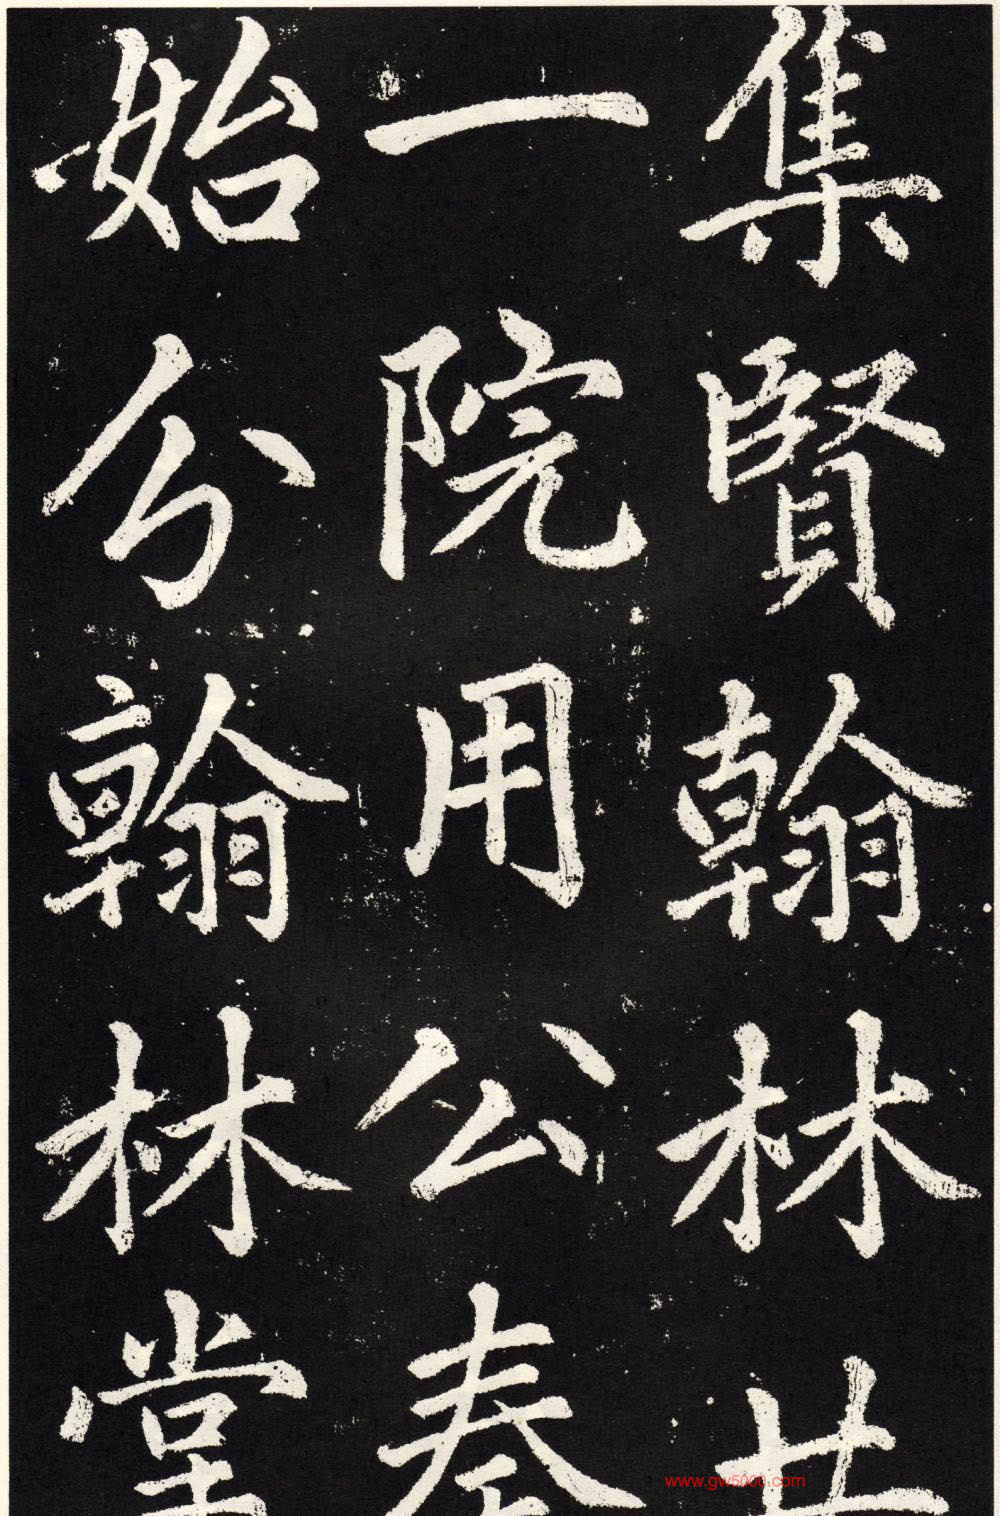 集賢翰林共
一院用公奏
始分翰林掌